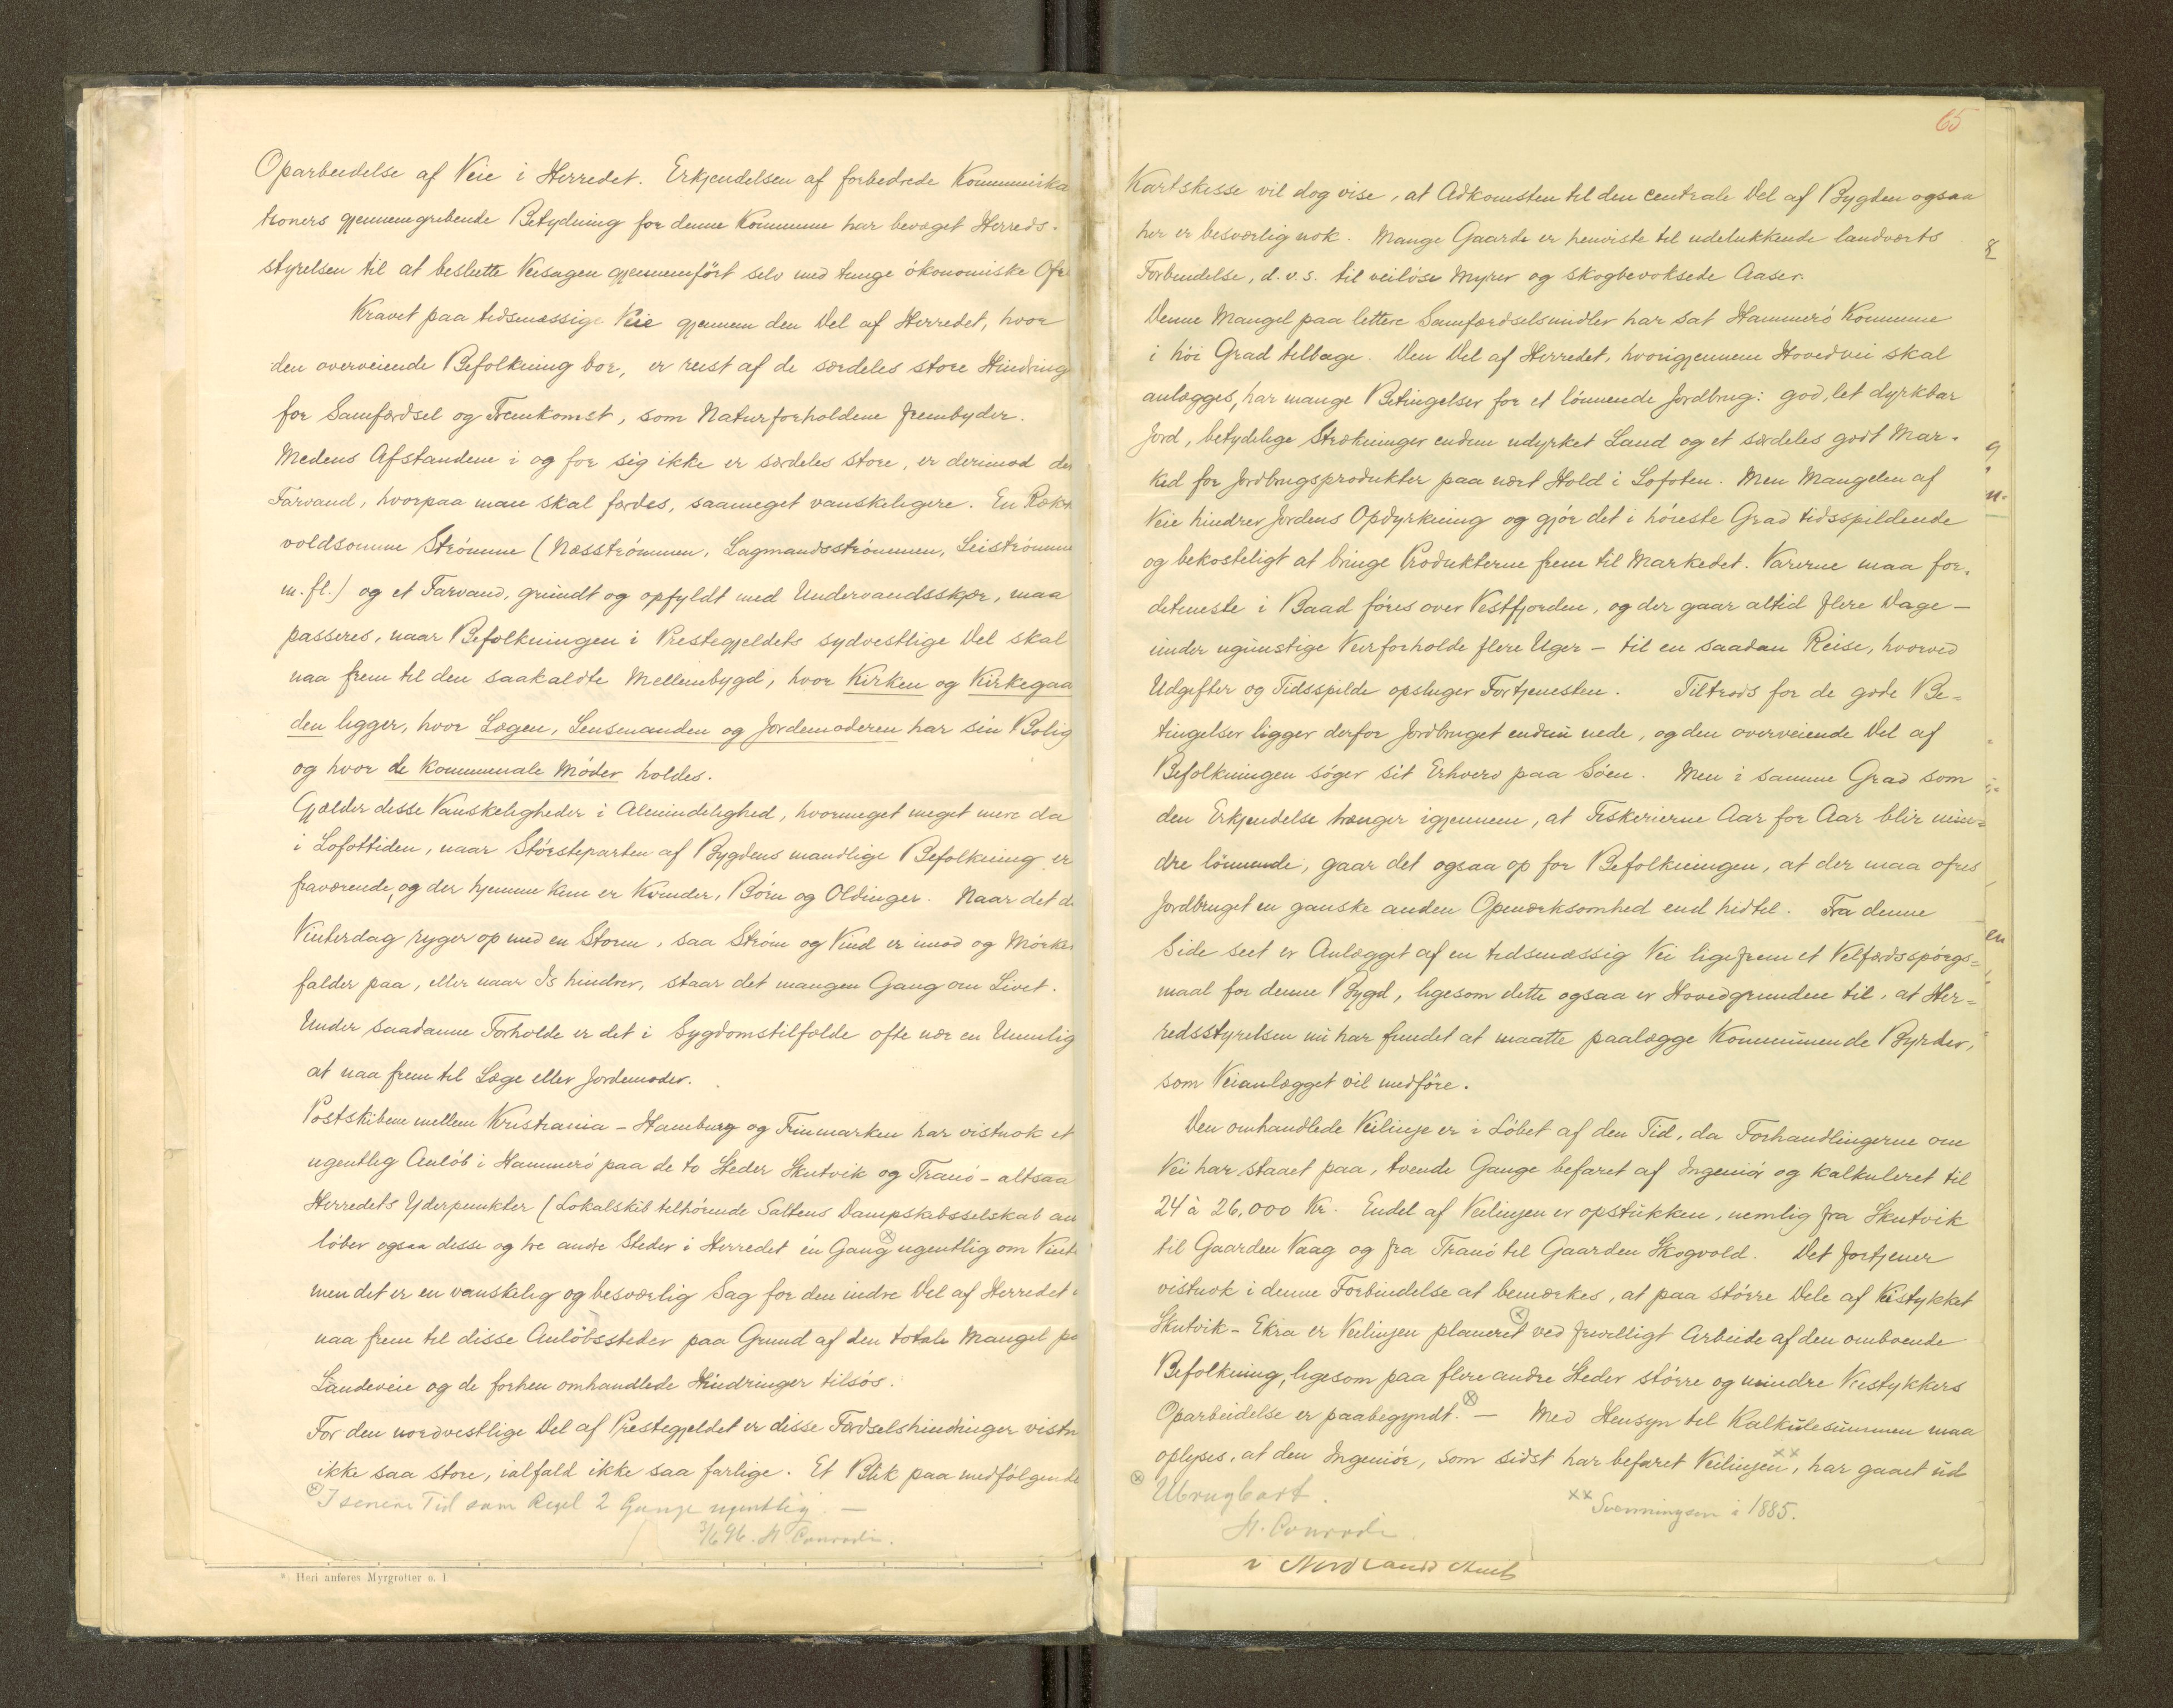 Oparbeidelse af Veie i Herredet. Erkjendelsen af forbedrede Kommunika
tioners gjennemgribende Betydning for denne Kommune har bevæget Herreds-
styrelsen til at beslutte Veisagen gjennemført selv med tunge ökonomiske Ofre
Kravet paa tidsmæssige Veie gjennem den Del af Herredet, hvor
den overveiende Befolkning bor, er reist af de særdeles store Hindring
for Samfærdsel og Fremkomst, som Naturforholdene frembyder.
Medens Afstandene i og for sig ikke er særdeles store, er derimod de
Farvand, hvorpaa man skal færdes, saameget vanskeligere. En Række
voldsomme Strömme (Næsströmmen, Lagmandsströmmen, Leiströmme
m.fl.) og et Farvand, grundt og opfyldt med Undervandsskjær, maa
passeres, naar Befolkningen i Prestegjeldets sydvestlige Del skal
naa frem til den saakaldte Mellembygd, hvor Kirken og Kirkegaa
den ligger, hvor Lægen, Lensmanden og Jordemoderen har sin Bolig
og hvor de kommunale Möder holdes.
Gjælder disse Vanskeligheder i Almindelighed, hvormeget meget mere da
i Lofottiden, naar Störsteparten af Bygdens mandlige Befolkning er
fraværende, og der hjemme kun er Kvinder, Börn og Oldinger. Naar det d
Vinterdag ryger op med en Storm, saa Ström og Vind er imod og Mörke
falder paa, eller naar Is hindrer, staar det mangen Gang om Livet.
Under saadanne Forholde er det i Sygdomstilfælde ofte nær en Umulig
at naa frem til Læge eller Jordemoder.
Postskibene mellem Kristiania - Hamburg og Finmarken har vistnok et
ugentlig Anlöb i Hammerö paa de to Steder Skutvik og Tranö - altsaa
Herredets Yderpunkter (Lokalskib tilhörende Saltens Dampskibsselskab an
löber ogsaa disse og tre andre Steder i Herredet én Gang ⊗ ugentlig om Vint
men det er en vanskelig og besværlig Sag for den indre Del af Herredet
naa frem til disse Anlöbssteder paa Grund af den totale Mangel pa
Landeveie og de forhen omhandlede Hindringer tilsös.
For den nordvestlige Del af Prestegjeldet er disse Færdselshindringer vistn
ikke saa store, ialfald ikke saa farlige. Et Blik paa medfölgende
⊗ I senere Tid som Regel 2 Gange ugentlig. —
3/6 96. H. Conradi.
* Heri anføres Myrgrøfter o. l
65
Kartskisse vil dog vise, at Adkomsten til den centrale Del af Bygden ogsaa
her er besværlig nok. Mange Gaarde er henviste til udelukkende landværts
Forbindelse, d.v.s. til veilöse Myrer og skogbevoksede Aaser.
Denne Mangel paa lettere Samfærdselsmidler har sat Hammerö Kommune
i höi Grad tilbage. Den Del af Herredet, hvorigjennem Hovedvei skal
anlægges, har mange Betingelser for et lönnende Jordbrug: god, let dyrkbar
Jord, betydelige Strækninger endnu udyrket Land og et særdeles godt Mar-
ked for Jordbrugsprodukter paa nært Hold i Lofoten. Men Mangelen af
Veie hindrer Jordens Opdyrkning og gjör det i höieste Grad tidsspildende
og bekosteligt at bringe Produkterne frem til Markedet. Varerne maa for-
detmeste i Baad föres over Vestfjorden, og der gaar altid flere Dage —
under ugunstige Veirforholde flere Uger — til en saadan Reise, hvorved
Udgifter og Tidsspilde opsluger Fortjenesten. Tiltrods for de gode Be-
tingelser ligger derfor Jordbruget endnu nede, og den overveiende Del af
Befolkningen söger sit Erhverv paa Söen. Men i samme Grad som
den Erkjendelse trænger igjennem, at Fiskerierne Aar for Aar blir min-
dre lönnende, gaar det ogsaa op for Befolkningen, at der maa ofres
Jordbruget en ganske anden Opmærksomhed end hidtil. Fra denne
Side seet er Anlægget af en tidsmæssig Vei ligefrem et Velfærdsspörgs-
maal for denne Bygd, ligesom dette ogsaa er Hovedgrunden til, at Her-
redsstyrelsen nu har fundet at maatte paalægge Kommunen de Byrder,
som Veianlægget vil medföre.
Den omhandlede Veilinje er i Löbet af den Tid, da Forhandlingerne om
Vei har staaet paa, tvende Gange befaret af Ingeniör og kalkuleret til
24 à 26.000 Kr. Endel af Veilinjen er opstukken, nemlig fra Skutvik
til Gaarden Vaag og fra Tranö til Gaarden Skogvold. Det fortjener
vistnok i denne Forbindelse at bemærkes, at paa större Dele af Veistykket
Skutvik - Ekra er Veilinjen planeret ⊗ ved frivilligt Arbeide af den omboende
Befolkning, ligesom paa flere andre Steder större og mindre Veistykkers
Oparbeidelse er paabegyndt. ⊗ — Med Hensyn til Kalkulesummen maa
oplyses, at den Ingeniör, som sidst har befaret Veilinjen ××, har gaaet ud
⊗ Ubrugbart.
H. Conradi.
×× Svenningsen i 1885.
i Nordlands Amt